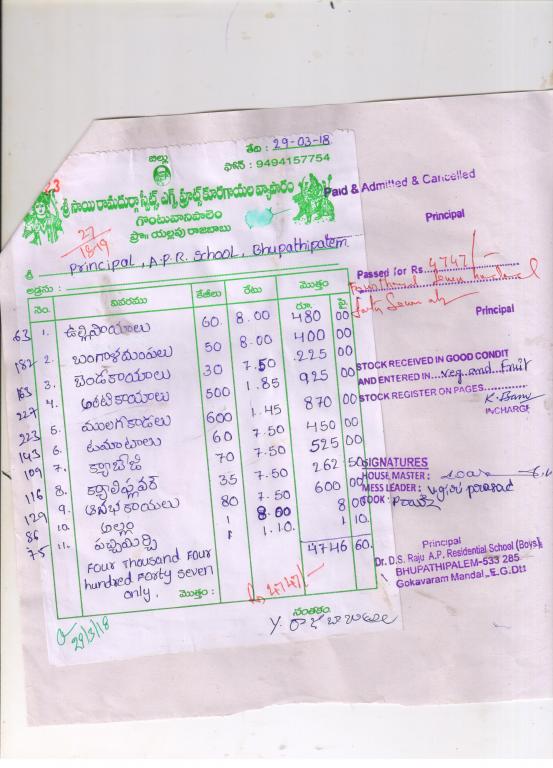 బిల్లు
తేది : 29-03-18
ఫోన్ : 9494157754
శ్రీ సాయి రామదుర్గా స్వీట్స్, ఎగ్స్, ఫ్రూట్స్ కూరగాయల వ్యాపారం
గొంటువానిపాలెం
ప్రొ॥ యల్లపు రాజబాబు
27
18-19
శ్రీ Principal, A.P.R. School, Bhupathipalem
అడ్రసు :
నెం. వివరము కేజీలు రేటు మొత్తం
రూ. పై.
63 1. ఉల్లిపాయలు 60. 8.00 480 00
182 2. బంగాళదుంపలు 50 8.00 400 00
163 3. బెండకాయలు 30 7.50 225 00
227 4. అరటికాయలు 500 1.85 925 00
223 5. ములగకాడలు 600 1.45 870 00
143 6. టమాటాలు 60 7.50 450 00
109 7. క్యాబేజి 70 7.50 525 00
116 8. క్యాలిఫ్లవర్ 35 7.50 262 50
129 9. ఆనబకాయలు 80 7.50 600 00
86 10. అల్లం 1 8.00 8 00
75 11. పచ్చిమిర్చి 1 1.10. 1 10.
Four Thousand Four
hundred Forty Seven
only.
మొత్తం :
4746 60.
Rs 4747/-
29/3/18
సంతకం
Y. రాజబాబు
Paid & Admitted & Cancelled
Principal
Passed for Rs. 4747/-
Principal
STOCK RECEIVED IN GOOD CONDIT
AND ENTERED IN...Veg and Fruit
STOCK REGISTER ON PAGES
INCHARGE
SIGNATURES
HOUSE MASTER :
MESS LEADER :
COOK :
Principal
Dr. D.S. Raju A.P. Residential School (Boys)
BHUPATHIPALEM-533 285
Gokavaram Mandal, E.G.Dtt